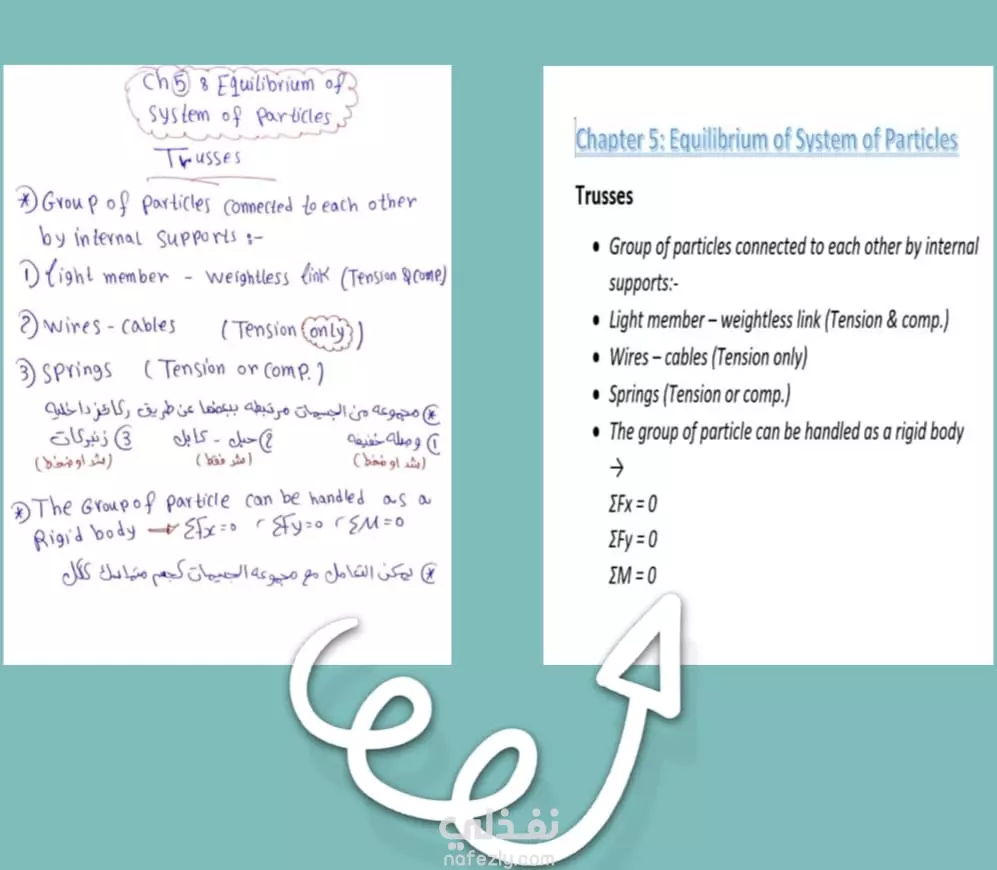 Ch 5 : Equilibrium of
system of particles
Trusses
*) Group of particles connected to each other
by internal supports :-
1) light member - weightless link (Tension & comp)
2) wires - cables (Tension only)
3) springs (Tension or comp.)
*) مجموعه من الجسيمات مرتبطه ببعضها عن طريق ركائز داخليه
1) وصله خفيفه 2) حبل - كابل 3) زنبركات
(شد او ضغط) (شد فقط) (شد او ضغط)
*) The Group of particle can be handled as a
Rigid body → ΣFx=0 , ΣFy=0 , ΣM=0
*) يمكن التعامل مع مجموعه الجسيمات كجسم متماسك ككل
Chapter 5: Equilibrium of System of Particles
Trusses
• Group of particles connected to each other by internal
supports:-
• Light member – weightless link (Tension & comp.)
• Wires – cables (Tension only)
• Springs (Tension or comp.)
• The group of particle can be handled as a rigid body
→
ΣFx = 0
ΣFy = 0
ΣM = 0
نفذلي
nafezly.com